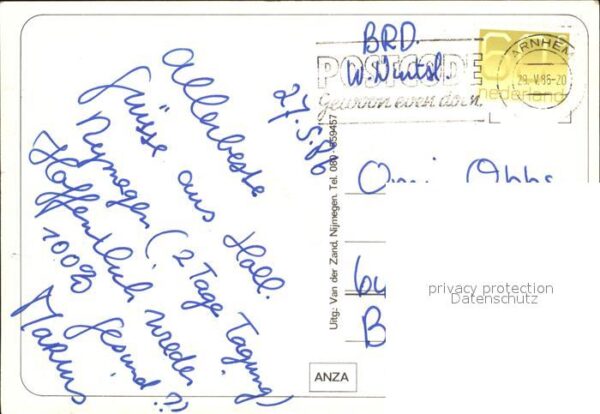 27.5.86
Allerbeste
Grüsse aus Holl.
Nymegen (2 Tage Tagung)
Hoffentlich wieder
100% gesund!!
Markus
BRD.
W.Deutschl
POSTCODE
Gewoon even doen.
ARNHEM
29.V.86-20
nederland
Omi
B
Uitg.: Van der Zand, Nijmegen. Tel. 080-559457
ANZA
privacy protection
Datenschutz